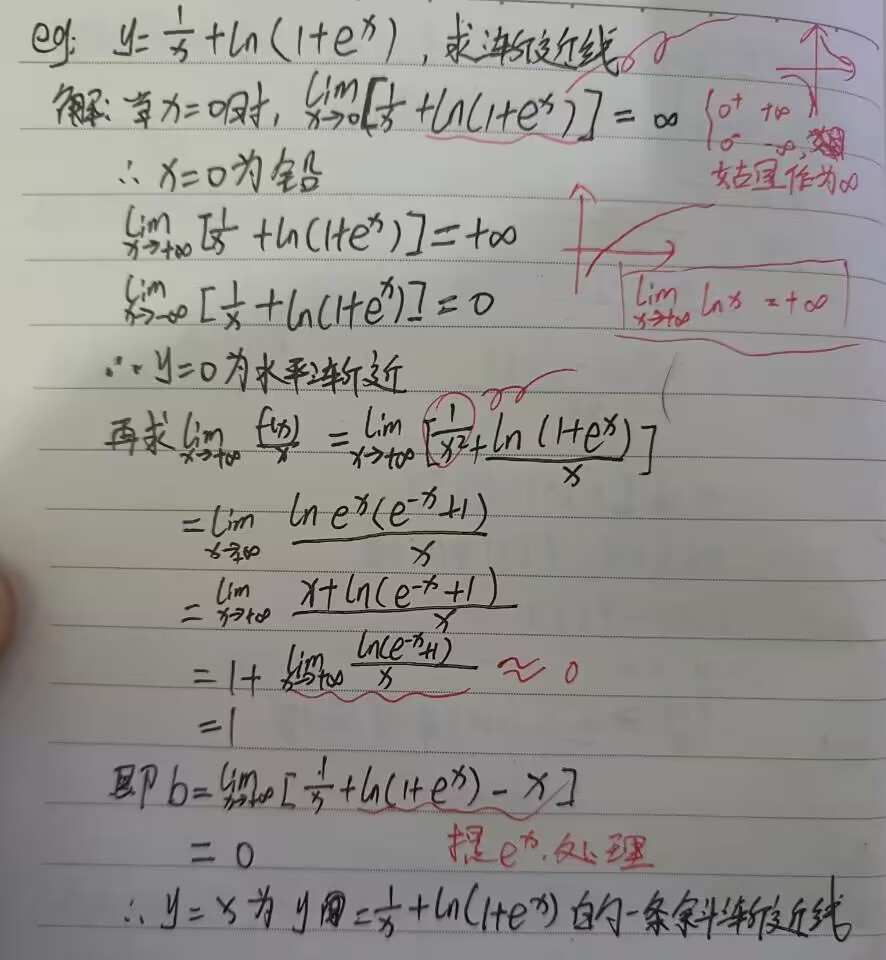 eg: y=1/x+ln(1+e^x),求渐近线
解:当x=0时,lim x→0 [1/x+ln(1+e^x)]=∞ { 0⁺ +∞
0⁻ -∞,
故写作为∞
∴ x=0为铅
lim x→+∞ [1/x+ln(1+e^x)]=+∞
lim x→-∞ [1/x+ln(1+e^x)]=0
lim x→+∞ ln x=+∞
∴ y=0为水平渐近
再求 lim x→+∞ f(x)/x = lim x→+∞ [1/x²+ln(1+e^x)/x]
= lim x→+∞ ln e^x(e^-x+1)/x
= lim x→+∞ x+ln(e^-x+1)/x
= 1+ lim x→+∞ ln(e^-x+1)/x ≈ 0
=1
即 b= lim x→+∞ [1/x+ln(1+e^x)-x]
=0 提e^x处理
∴ y=x为y=1/x+ln(1+e^x)的一条斜渐近线